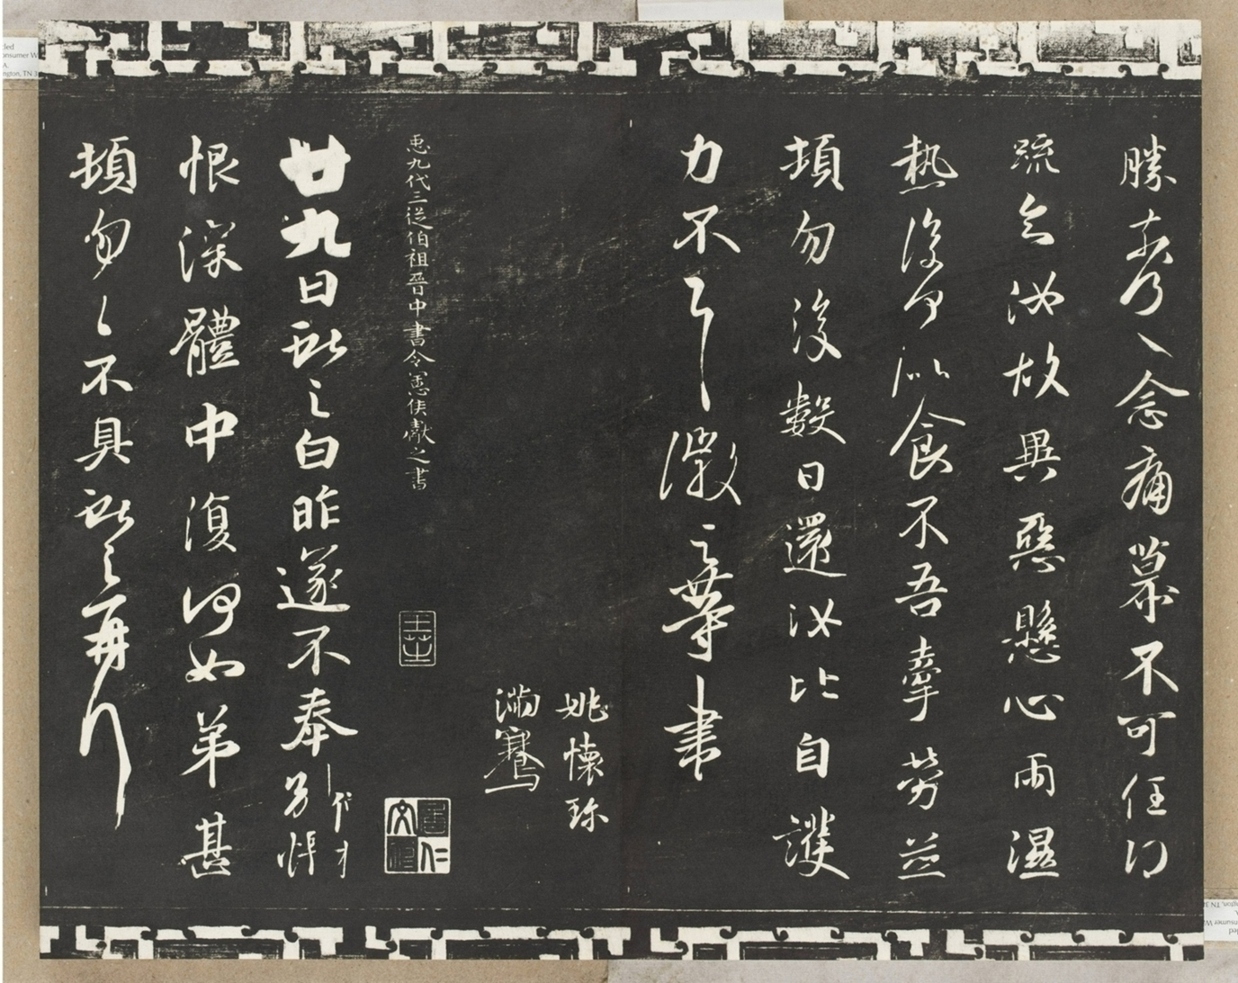 勝奈何〻念痛慕不可任得
疏知汝故異惡懸心雨濕
熱復何似食不吾牽勞並
頓勿復數日還汝比自護
力不一一徽之等書
姚懷珍
滿騫
𢘑九代三從伯祖晉中書令憲侯獻之書
廿九日獻之白昨遂不奉別悵
恨深體中復何如弟甚
頓匆〻不具獻之再拜